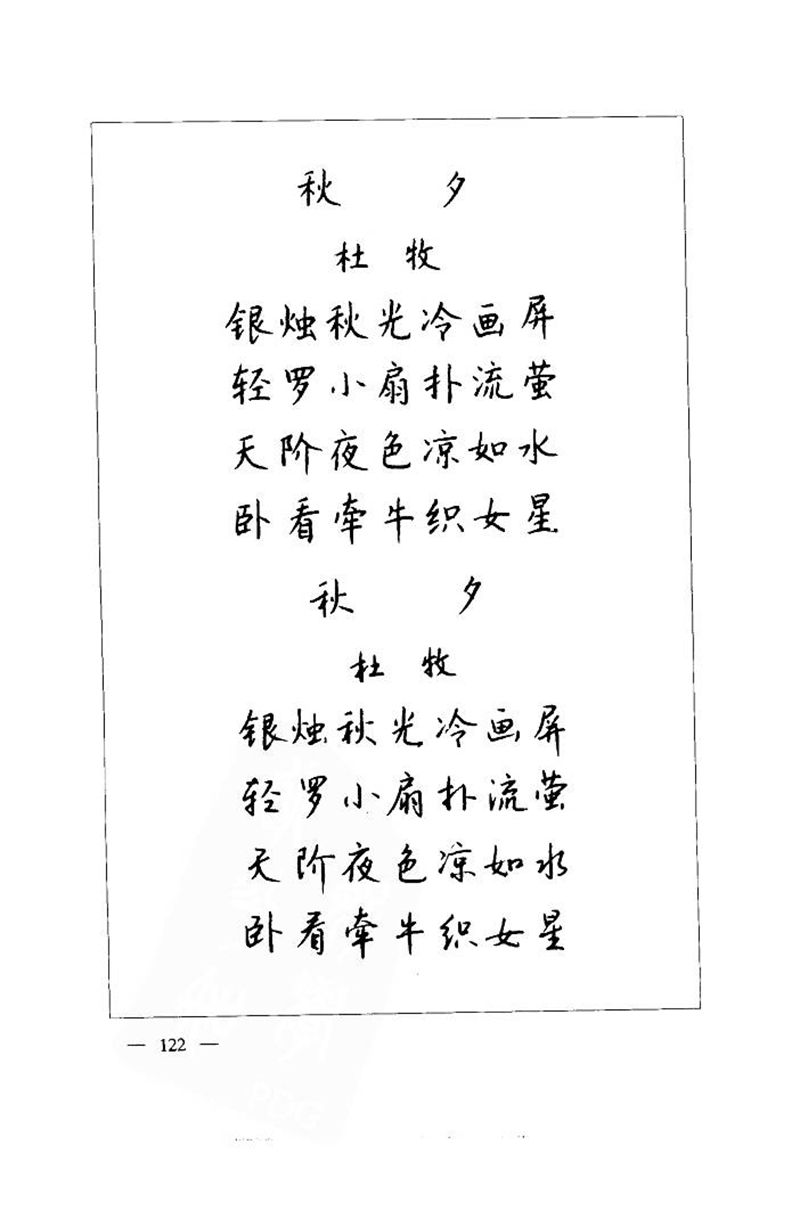 秋 夕
杜 牧
银烛秋光冷画屏
轻罗小扇扑流萤
天阶夜色凉如水
卧看牵牛织女星
秋 夕
杜 牧
银烛秋光冷画屏
轻罗小扇扑流萤
天阶夜色凉如水
卧看牵牛织女星
— 122 —